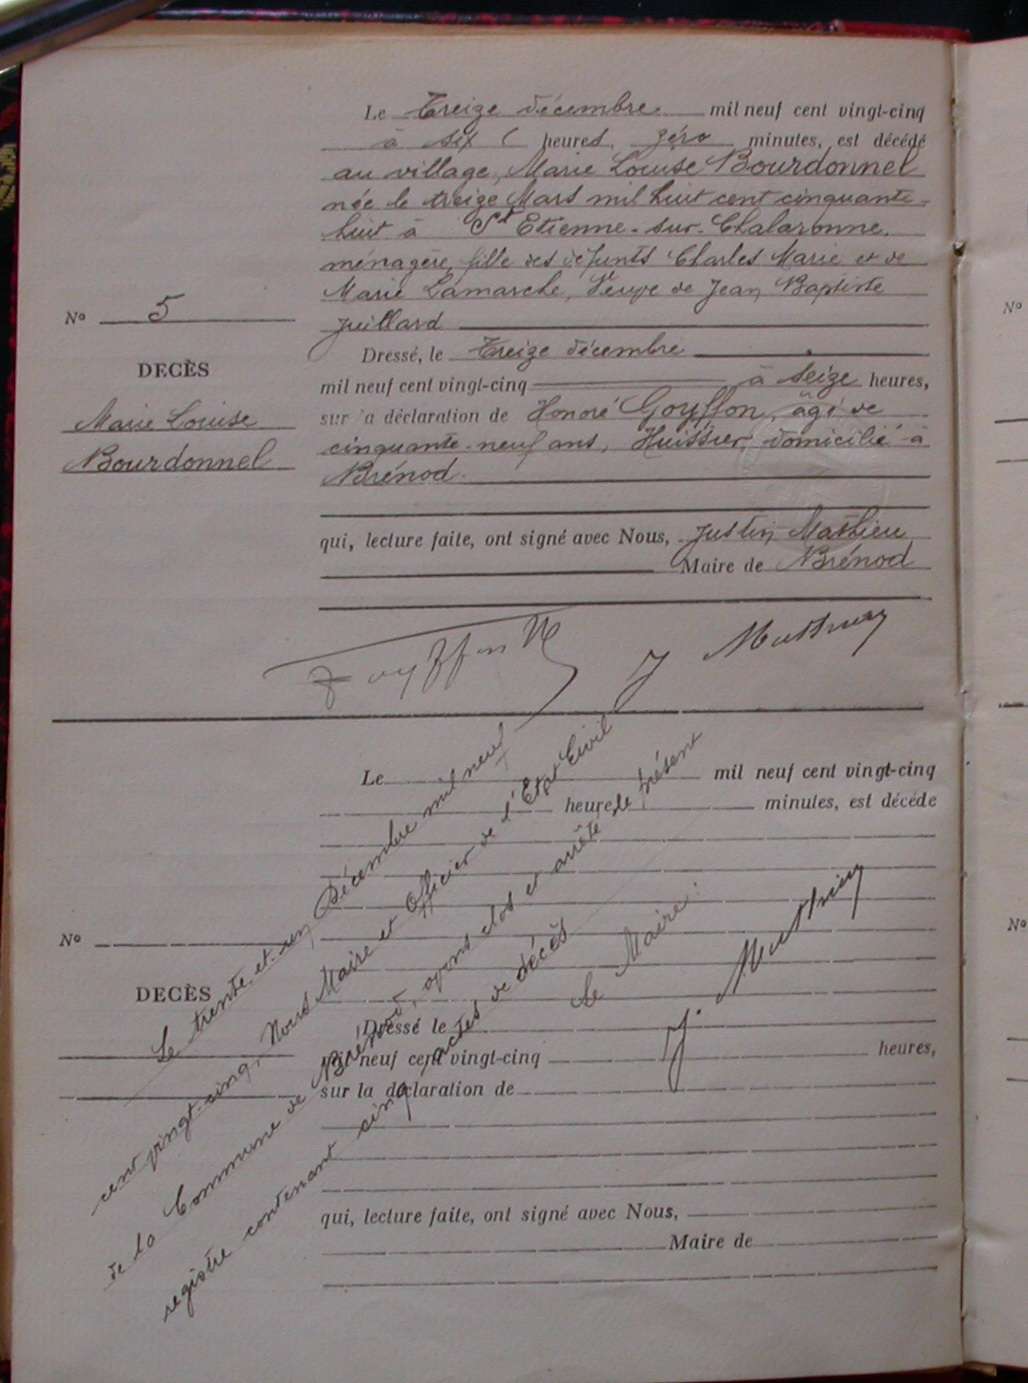 Le Treize décembre mil neuf cent vingt-cinq
à six heures, zéro minutes, est décédé
au village, Marie Louise Bourdonnel
née le treize Mars mil huit cent cinquante-
huit à St Etienne-sur-Chalaronne,
ménagère, fille des défunts Charles Marie et de
Marie Lamarche, Veuve de Jean Baptiste
Juillard
No 5
DECÈS
Marie Louise
Bourdonnel
Dressé, le Treize décembre
mil neuf cent vingt-cinq à seize heures,
sur la déclaration de Honoré Goyffon, âgé de
cinquante-neuf ans, Huissier, domicilié à
Brénod.
qui, lecture faite, ont signé avec Nous, Justin Mathieu
Maire de Brénod
Goyffon H
J Mathieu
Le mil neuf cent vingt-cinq
heures, minutes, est décédé
No
DECÈS
Dressé le
mil neuf cent vingt-cinq heures,
sur la déclaration de
qui, lecture faite, ont signé avec Nous,
Maire de
Le trente et un Décembre mil neuf
cent vingt-cinq, Nous Maire et Officier de l'Etat Civil
de la Commune de Brénod, avons clos et arrêté le présent
registre contenant cinq actes de décès
Le Maire:
J. Mathieu
No
No